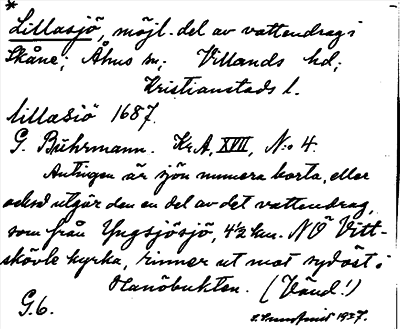 * Lillasjö, möjl. del av vattendrag i
Skåne; Åhus sn; Villands hd;
Kristianstads l.
lillasiö 1687.
G. Buhrmann. Kr.A, XVII, N:o 4.
Antingen är sjön numera borta, eller
också utgör den en del av det vattendrag,
som från Yngsjösjö, 4½ km. NÖ Vitt-
skövle kyrka, rinner ut mot sydöst i
Hanöbukten. (Vänd!)
G.6. 1937.